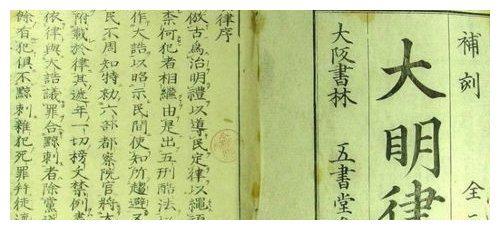 補刻　全
大明律
大阪書林　五書堂
律序
倣古為治明禮以導民定律以繩
柰何犯者相繼由是出五刑酷法以
作大誥以昭示民間使知所趨避
民不周知特勑六部都察院官將大
附載於律其遞年一切榜文禁例
依律與大誥議罪合黥刺者除黨
餘者犯俱不黥刺雜犯死罪幷徒